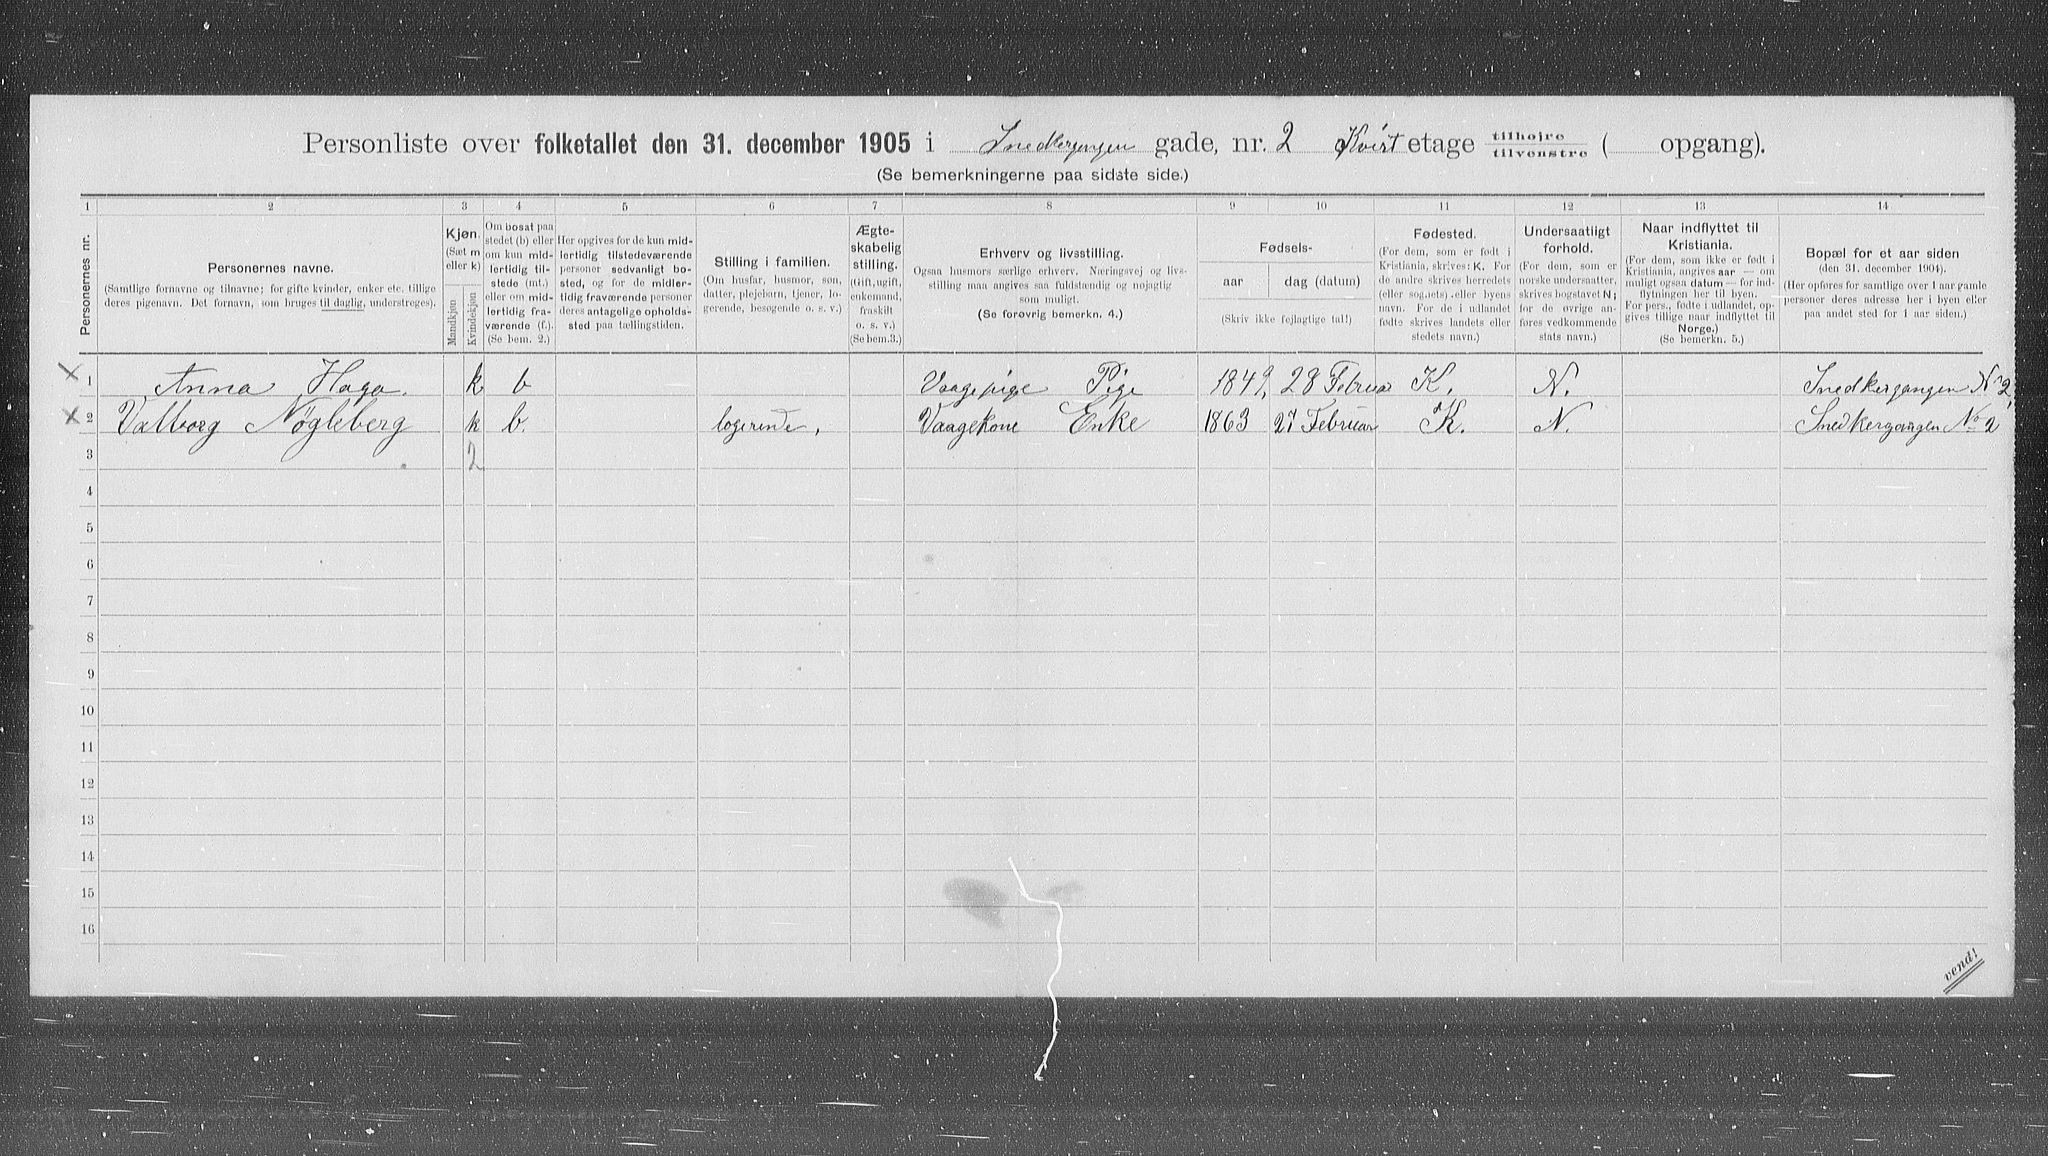 Personliste over folketallet den 31. december 1905 i Snedkergangen gade, nr. 2 Kvist etage tilhøjre tilvenstre ( opgang).
(Se bemerkningerne paa sidste side.)
1 2 3 4 5 6 7 8 9 10 11 12 13 14
Personernes nr.
Personernes navne.
(Samtlige fornavne og tilnavne; for gifte kvinder, enker etc. tillige
deres pigenavn. Det fornavn, som bruges til daglig, understreges).
Kjøn.
(Sæt m
eller k)
Mandkjøn
Kvindekjøn
Om bosat paa
stedet (b) eller
om kun mid-
lertidig til-
stede (mt.)
eller om mid-
lertidig fra-
værende (f.).
(Se bem. 2.)
Her opgives for de kun mid-
lertidig tilstedeværende
personer sedvanligt bo-
sted, og for de midler-
tidig fraværende personer
deres antagelige opholds-
sted paa tællingstiden.
Stilling i familien.
(Om husfar, husmor, søn,
datter, plejebarn, tjener, lo-
gerende, besøgende o. s. v.)
Ægte-
skabelig
stilling.
(Gift, ugift,
enkemand,
fraskilt
o. s. v.)
(Se bem.3.)
Erhverv og livsstilling.
Ogsaa husmors særlige erhverv. Næringsvej og livs-
stilling maa angives saa fuldstændig og nøjagtig
som muligt.
(Se forøvrig bemerkn. 4.)
Fødsels-
aar dag (datum)
(Skriv ikke fejlagtige tal!)
Fødested.
(For dem, som er født i
Kristiania, skrives: K. For
de andre skrives herredets
(eller sognets) eller byens
navn. For de i udlandet
fødte skrives landets eller
stedets navn.)
Undersaatligt
forhold.
(For dem, som er
norske undersaatter,
skrives bogstavet N;
for de øvrige an-
føres vedkommende
stats navn.)
Naar indflyttet til
Kristiania.
(For dem, som ikke er født i
Kristiania, angives aar — om
muligt ogsaa datum — for ind-
flytningen her til byen.
For pers., fødte i udlandet, op-
gives tillige naar indflyttet til
Norge.)
(Se bemerkn. 5.)
Bopæl for et aar siden
(den 31. december 1904).
(Her opføres for samtlige over 1 aar gamle
personer deres adresse her i byen eller
paa andet sted for 1 aar siden.)
1 Anna Haga. k b Vaagepige Pige 1849, 28 Februar K. N. Snedkergangen No 2,
2 Valborg Nøgleberg k b. logerende, Vaagekone Enke 1863 27 Februar K. N. Snedkergangen No 2
3 2
4
5
6
7
8
9
10
11
12
13
14
15
16
vend!